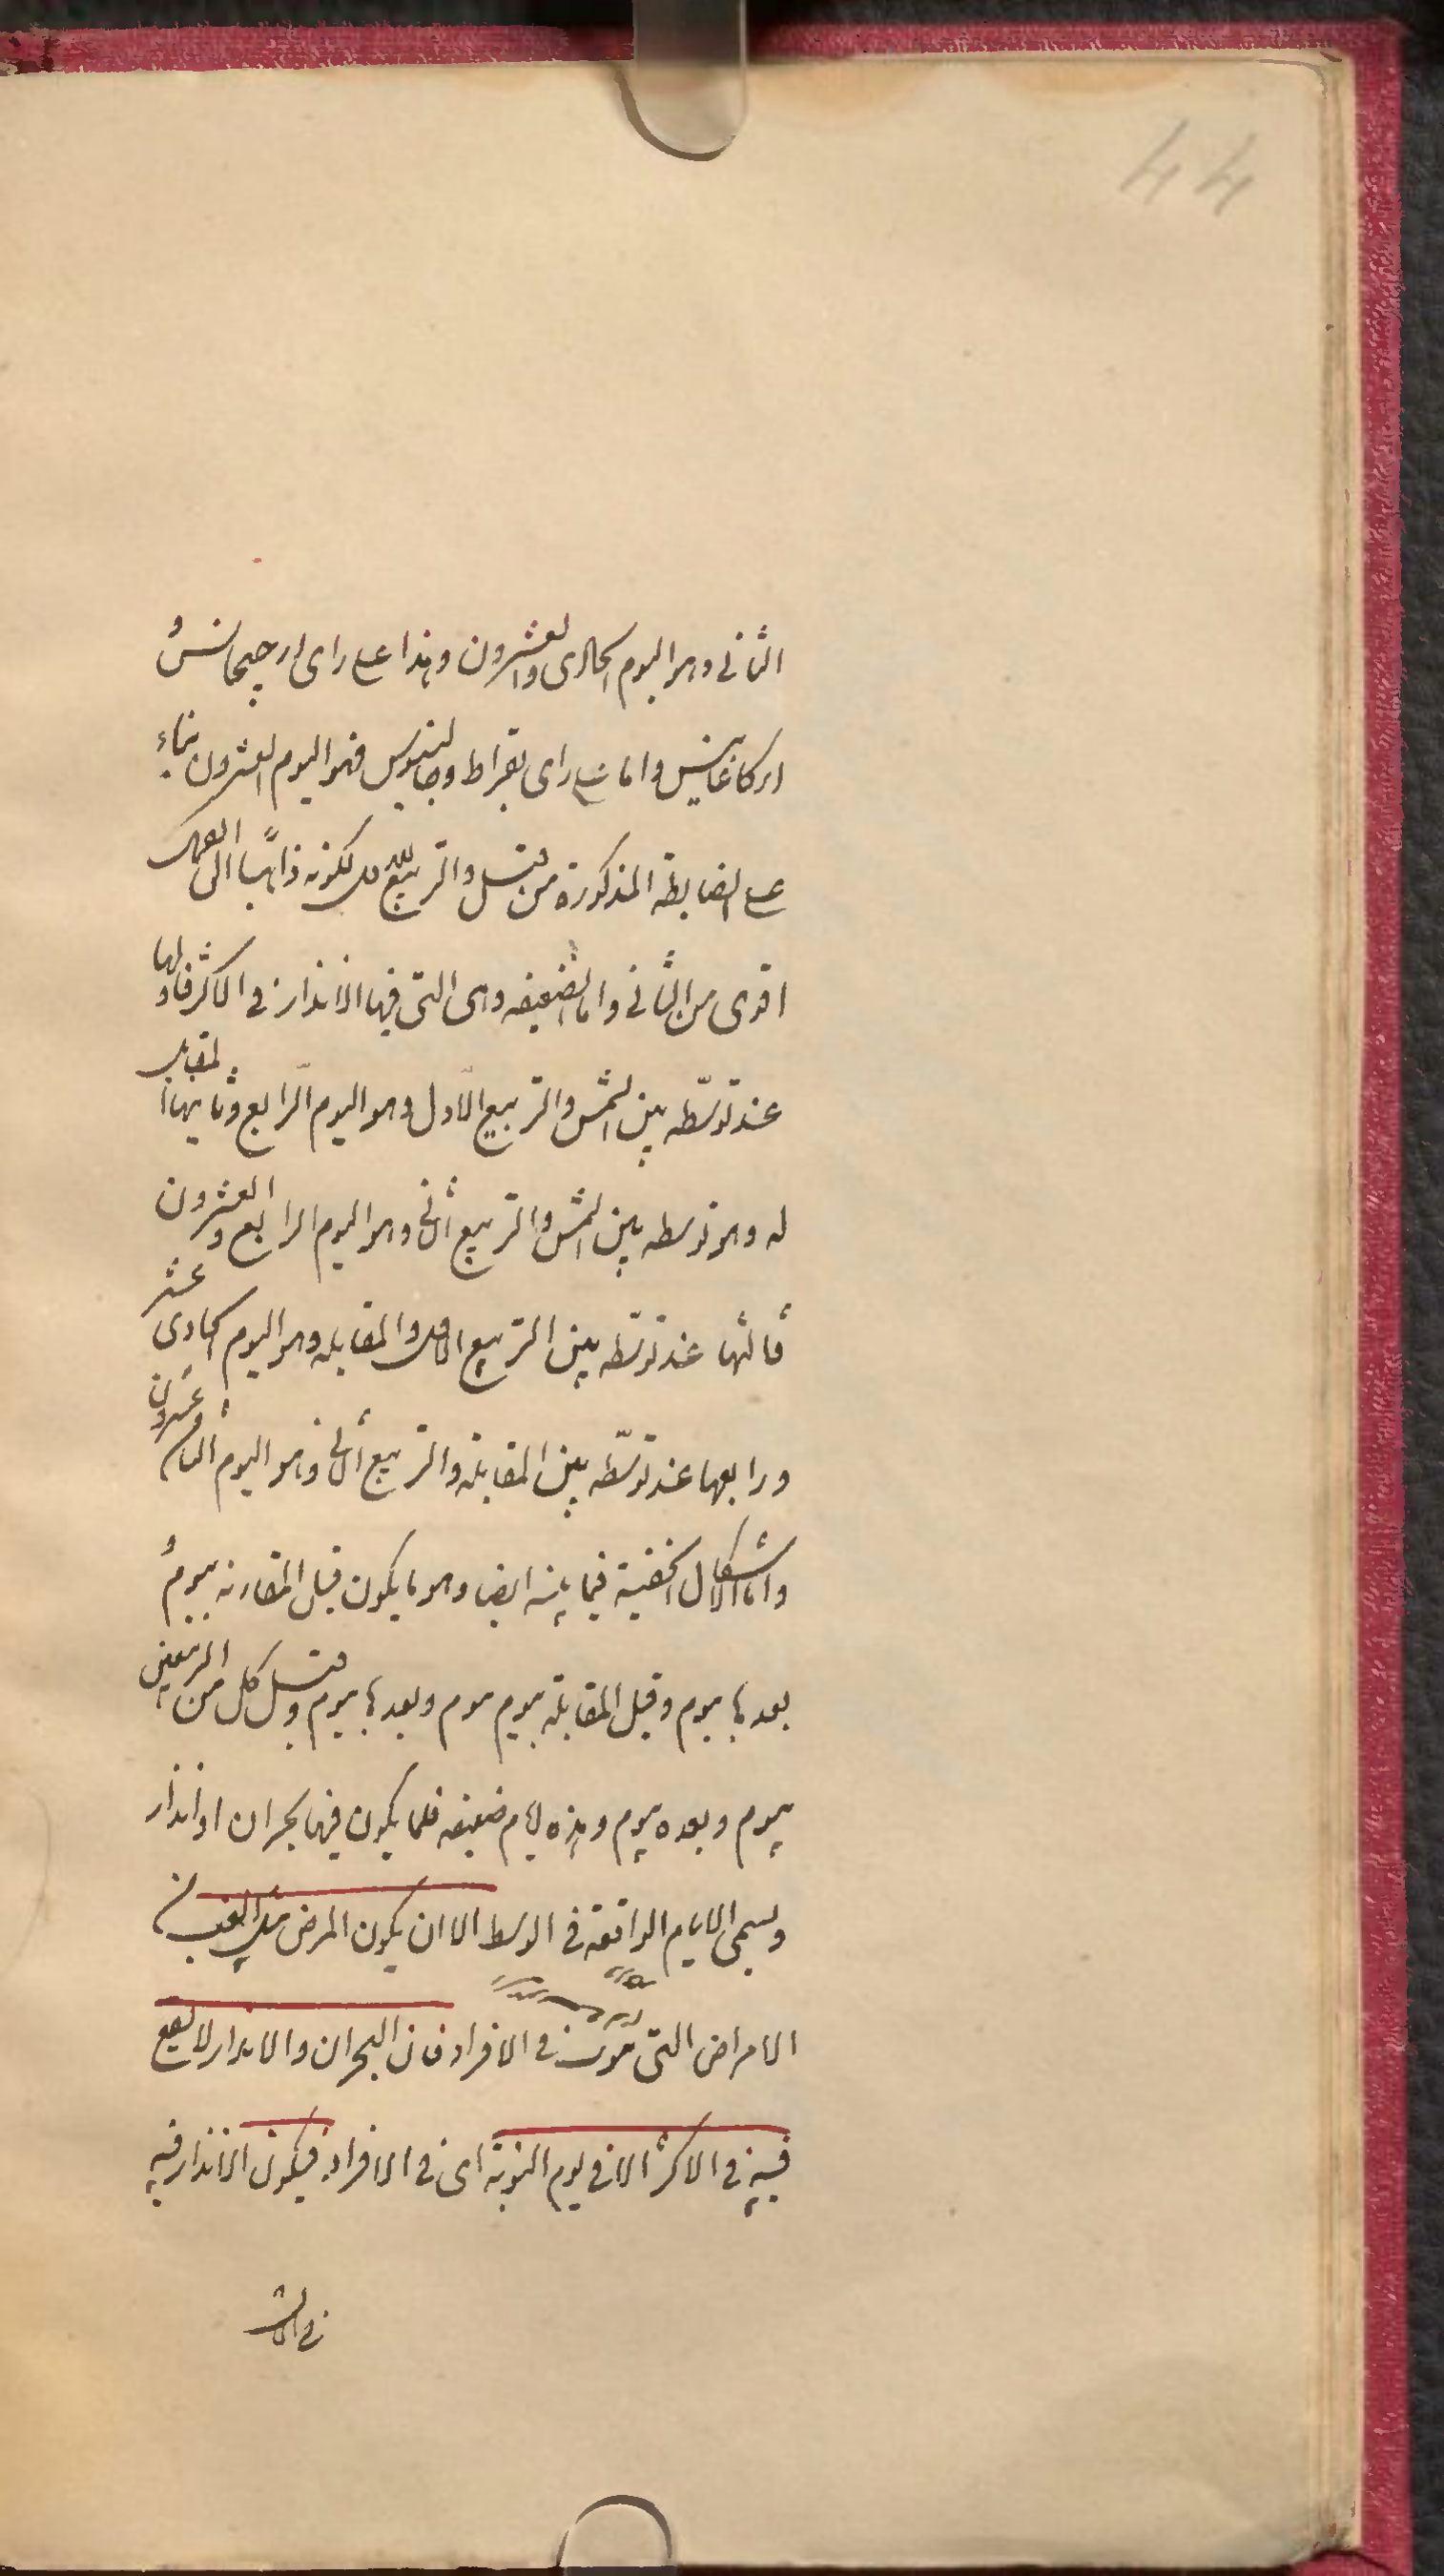 44
الثانى وهو اليوم الحادى والعشرون وهذا على راى ارجيجانس و
اركاغانيس واما على راى بقراط وجالينوس فهو اليوم العشرون بناء
على الضابطة المذكورة من قبل والتربيع الاول لكونه ذاهبًا الى
اقوى من الثانى واما الضعيفه وهى التى فيها الانذار فى الاكثر فاولها
عند توسّطه بين الشمس والتربيع الاول وهو اليوم الرابع وثانيها المقابل
له وهو توسطه بين الشمس والتربيع الثانى وهو اليوم الرابع والعشرون
ثالثها عند توسّطه بين التربيع الاول والمقابله وهو اليوم الحادى عشر
ورابعها عند توسّطه بين المقابلة والتربيع الثانى وهو اليوم
واما الاشكال الخفية فيما بينه ايضا وهو ما يكون قبل المقارنه بيوم و
بعدها بيوم وقبل المقابلة بيوم وبعدها بيوم وقبل كل من التربيعين
بيوم وبعده بيوم وهذه ايام ضعيفه فلما يكون فيها بحران او انذار
ويسمى الايام الواقعة فى الوسط الا ان يكون المرض مثل الغب من
الامراض التى تنوب فى الافراد فان البحران والانذار لا يقع
فيه فى الاكثر الا فى يوم النوبة اى فى الافراد فيكون الانذار فيه